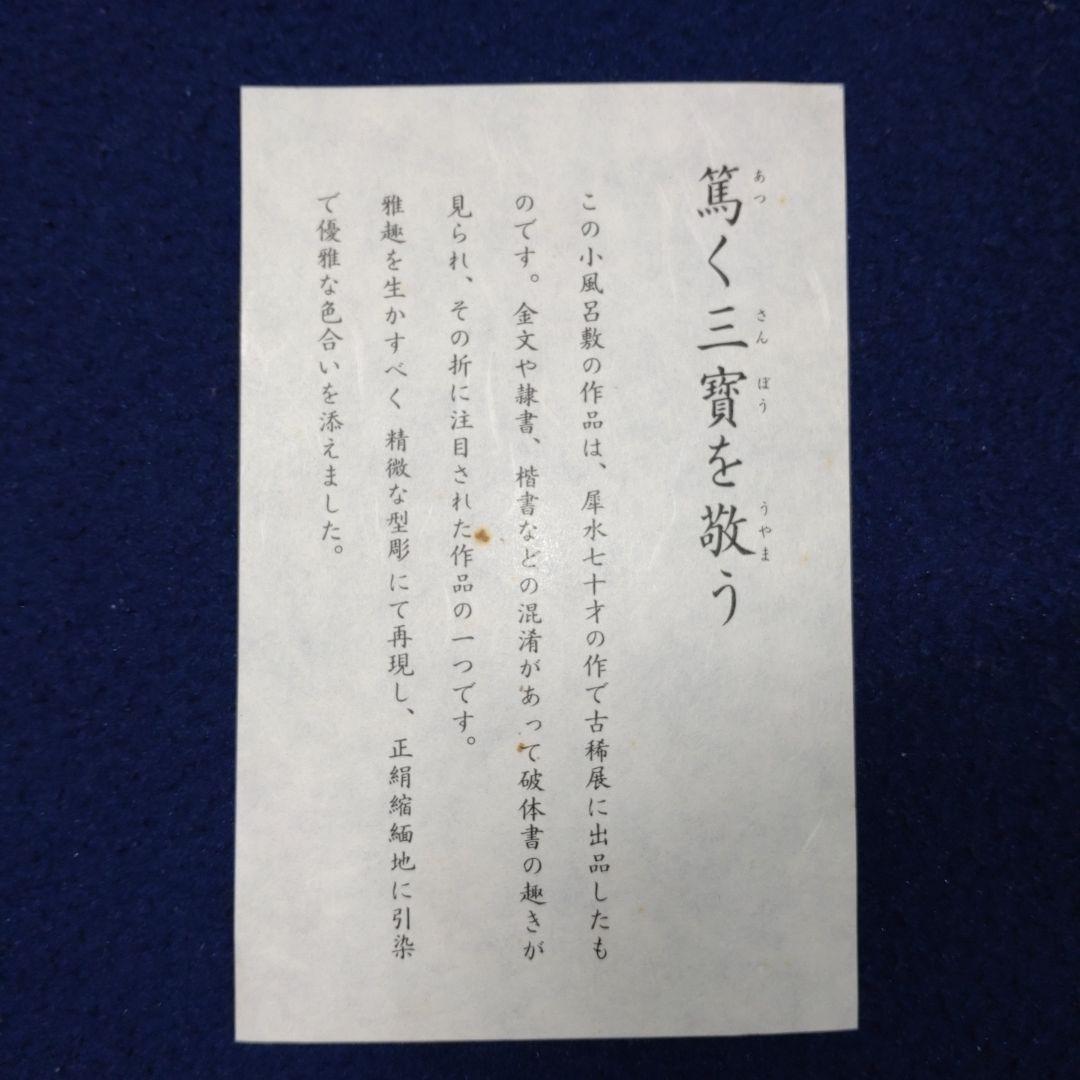 篤く三寶を敬う
あつ さん ぼう うやま
この小風呂敷の作品は、犀水七十才の作で古稀展に出品したも
のです。金文や隷書、楷書などの混淆があって破体書の趣きが
見られ、その折に注目された作品の一つです。
雅趣を生かすべく 精微な型彫にて再現し、正絹縮緬地に引染
で優雅な色合いを添えました。